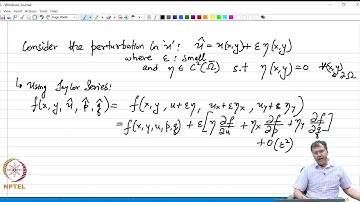 Windows Journal
Consider the perturbation in 'u': û = u(x,y) + ε η(x,y)
where ε: small
and η ∈ C²(Ω̄) s.t η(x,y) = 0 ∀(x,y) ∈ ∂Ω
↳ Using Taylor Series:
f(x, y, û, p̂, q̂) = f(x, y, u+εη, ux+εηx, uy+εηy)
= f(x, y, u, p, q) + ε[η ∂f/∂u + ηx ∂f/∂p + ηy ∂f/∂q]
+ O(ε²)
NPTEL